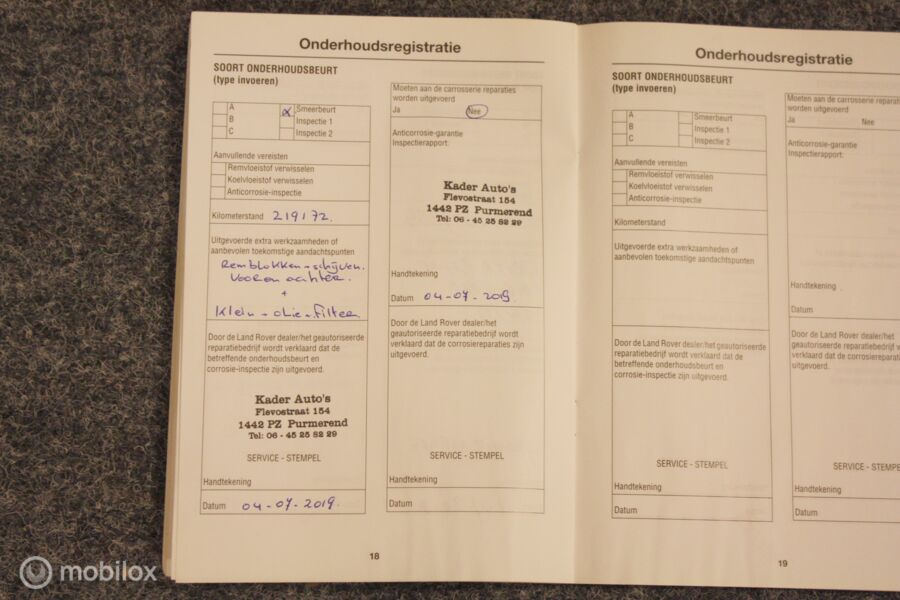 Onderhoudsregistratie
SOORT ONDERHOUDSBEURT
(type invoeren)
A
B
C
x Smeerbeurt
Inspectie 1
Inspectie 2
Aanvullende vereisten
Remvloeistof verwisselen
Koelvloeistof verwisselen
Anticorrosie-inspectie
Kilometerstand 219172.
Uitgevoerde extra werkzaamheden of
aanbevolen toekomstige aandachtspunten
Remblokken - schijven.
Voor en achter.
+
Klein - olie - filter
Door de Land Rover dealer/het
geautoriseerde reparatiebedrijf
reparatiebedrijf wordt verklaard dat de
betreffende onderhoudsbeurt en
corrosie-inspectie zijn uitgevoerd.
Kader Auto's
Flevostraat 154
1442 PZ Purmerend
Tel: 06 - 45 25 82 29
SERVICE - STEMPEL
Handtekening
Datum 04-07-2019.
Moeten aan de carrosserie reparaties
worden uitgevoerd
Ja Nee
Anticorrosie-garantie
Inspectierapport:
Kader Auto's
Flevostraat 154
1442 PZ Purmerend
Tel: 06 - 45 25 82 29
Handtekening
Datum 04-07-2019.
Door de Land Rover dealer/het
geautoriseerde reparatiebedrijf wordt
verklaard dat de corrosiereparaties zijn
uitgevoerd.
SERVICE - STEMPEL
Handtekening
Datum
18
Onderhoudsregistratie
SOORT ONDERHOUDSBEURT
(type invoeren)
A
B
C
Smeerbeurt
Inspectie 1
Inspectie 2
Aanvullende vereisten
Remvloeistof verwisselen
Koelvloeistof verwisselen
Anticorrosie-inspectie
Kilometerstand
Uitgevoerde extra werkzaamheden of
aanbevolen toekomstige aandachtspunten
Door de Land Rover dealer/het geautoriseerde
reparatiebedrijf wordt verklaard dat de
betreffende onderhoudsbeurt en
corrosie-inspectie zijn uitgevoerd.
SERVICE - STEMPEL
Handtekening
Datum
Moeten aan de carrosserie reparati
worden uitgevoerd
Ja Nee
Anticorrosie-garantie
Inspectierapport:
Handtekening
Datum
Door de Land Rover dealer/het
geautoriseerde reparatiebedrijf w
verklaard dat de corrosiereparati
uitgevoerd.
SERVICE - STEMPE
Handtekening
Datum
19
mobilox